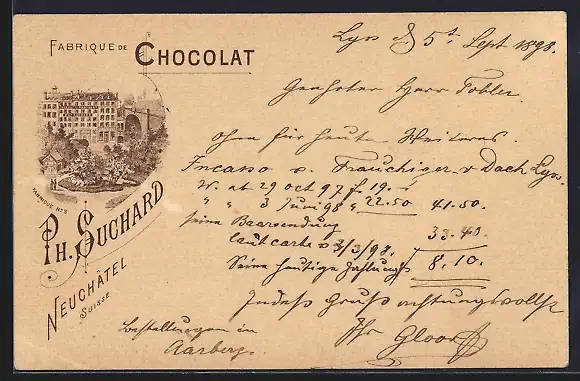 FABRIQUE DE CHOCOLAT
FABRIQUE No 5
PH. SUCHARD
NEUCHÂTEL
SUISSE
Lyss d 5t. Sept 1898.
Geehrter Herr Tobler.
Ohne für heute Weiteres.
Incasso v. Frauchiger v Dach Lyss.
N. at 29 oct 97 f 19.-
" " 3 Juni 98 " 22.50 41.50.
seine Baarsendung
laut carte v 3/3/98. 33.40.
Seine heutige Zahlung f 8.10.
Indeß Gruß achtungsvollst
Ihr Gloor
Bestellungen in
Aarberg.